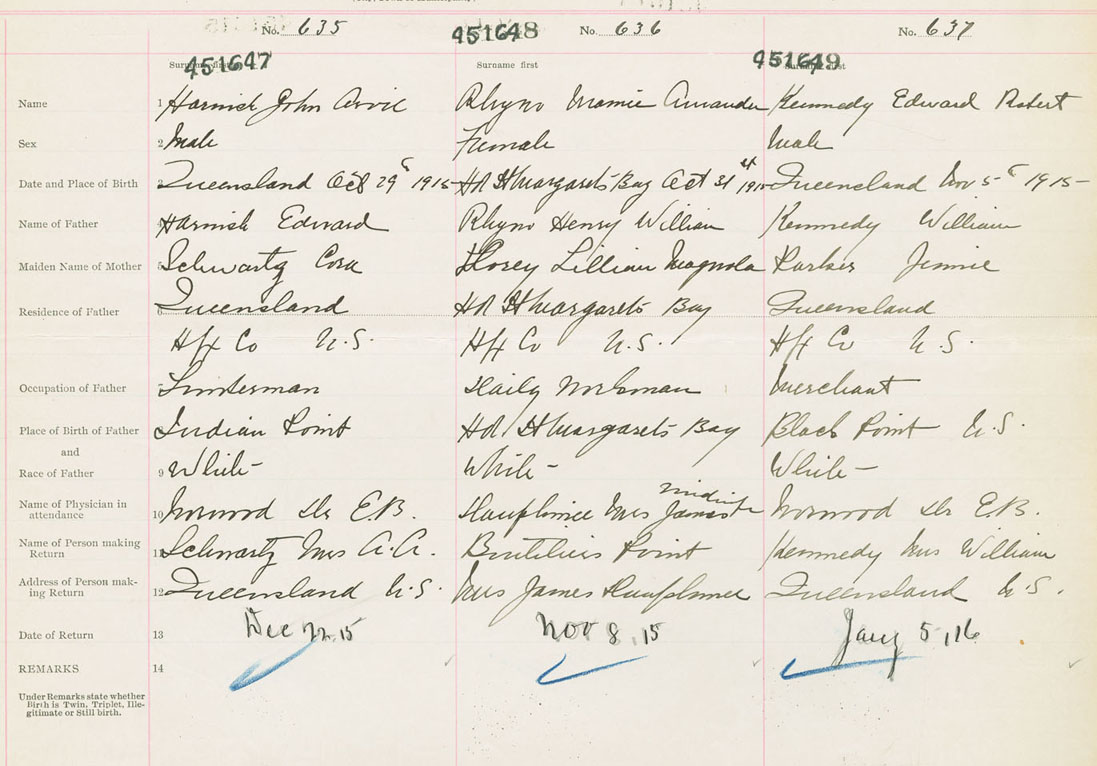 No. 635
451647
Surname first
Name 1 Harnish John Arvil
Sex 2 Male
Date and Place of Birth 3 Queensland Oct 29th 1915
Name of Father 4 Harnish Edward
Maiden Name of Mother 5 Schwartz Cora
Residence of Father 6 Queensland
Hfx Co N.S.
Occupation of Father 7 Limterman
Place of Birth of Father Indian Point
and
Race of Father 9 White
Name of Physician in attendance 10 Norwood Dr E.B.
Name of Person making Return 11 Schwartz Mrs A.A.
Address of Person making Return 12 Queensland N.S.
Date of Return 13 Dec 22 15
REMARKS 14
Under Remarks state whether
Birth is Twin, Triplet, Ille-
gitimate or Still birth.
451648
No. 636
Surname first
Rhyno Mamie Amanda
Female
Hd St Margarets Bay Oct 31st 1915
Rhyno Henry William
Lillian Magnola
Hd St Margarets Bay
Hfx Co N.S.
Daily Workman
Hd St Margarets Bay
White
Mrs James
Boutiliers Point
Mrs James
Nov 8, 15
No. 637
451649
Surname first
Kennedy Edward Robert
Male
Queensland Nov 5th 1915
Kennedy William
Parker Jennie
Queensland
Hfx Co N.S.
Merchant
Black Point N.S.
White
Norwood Dr E.B.
Kennedy Mrs William
Queensland N.S.
Jany 5, 16